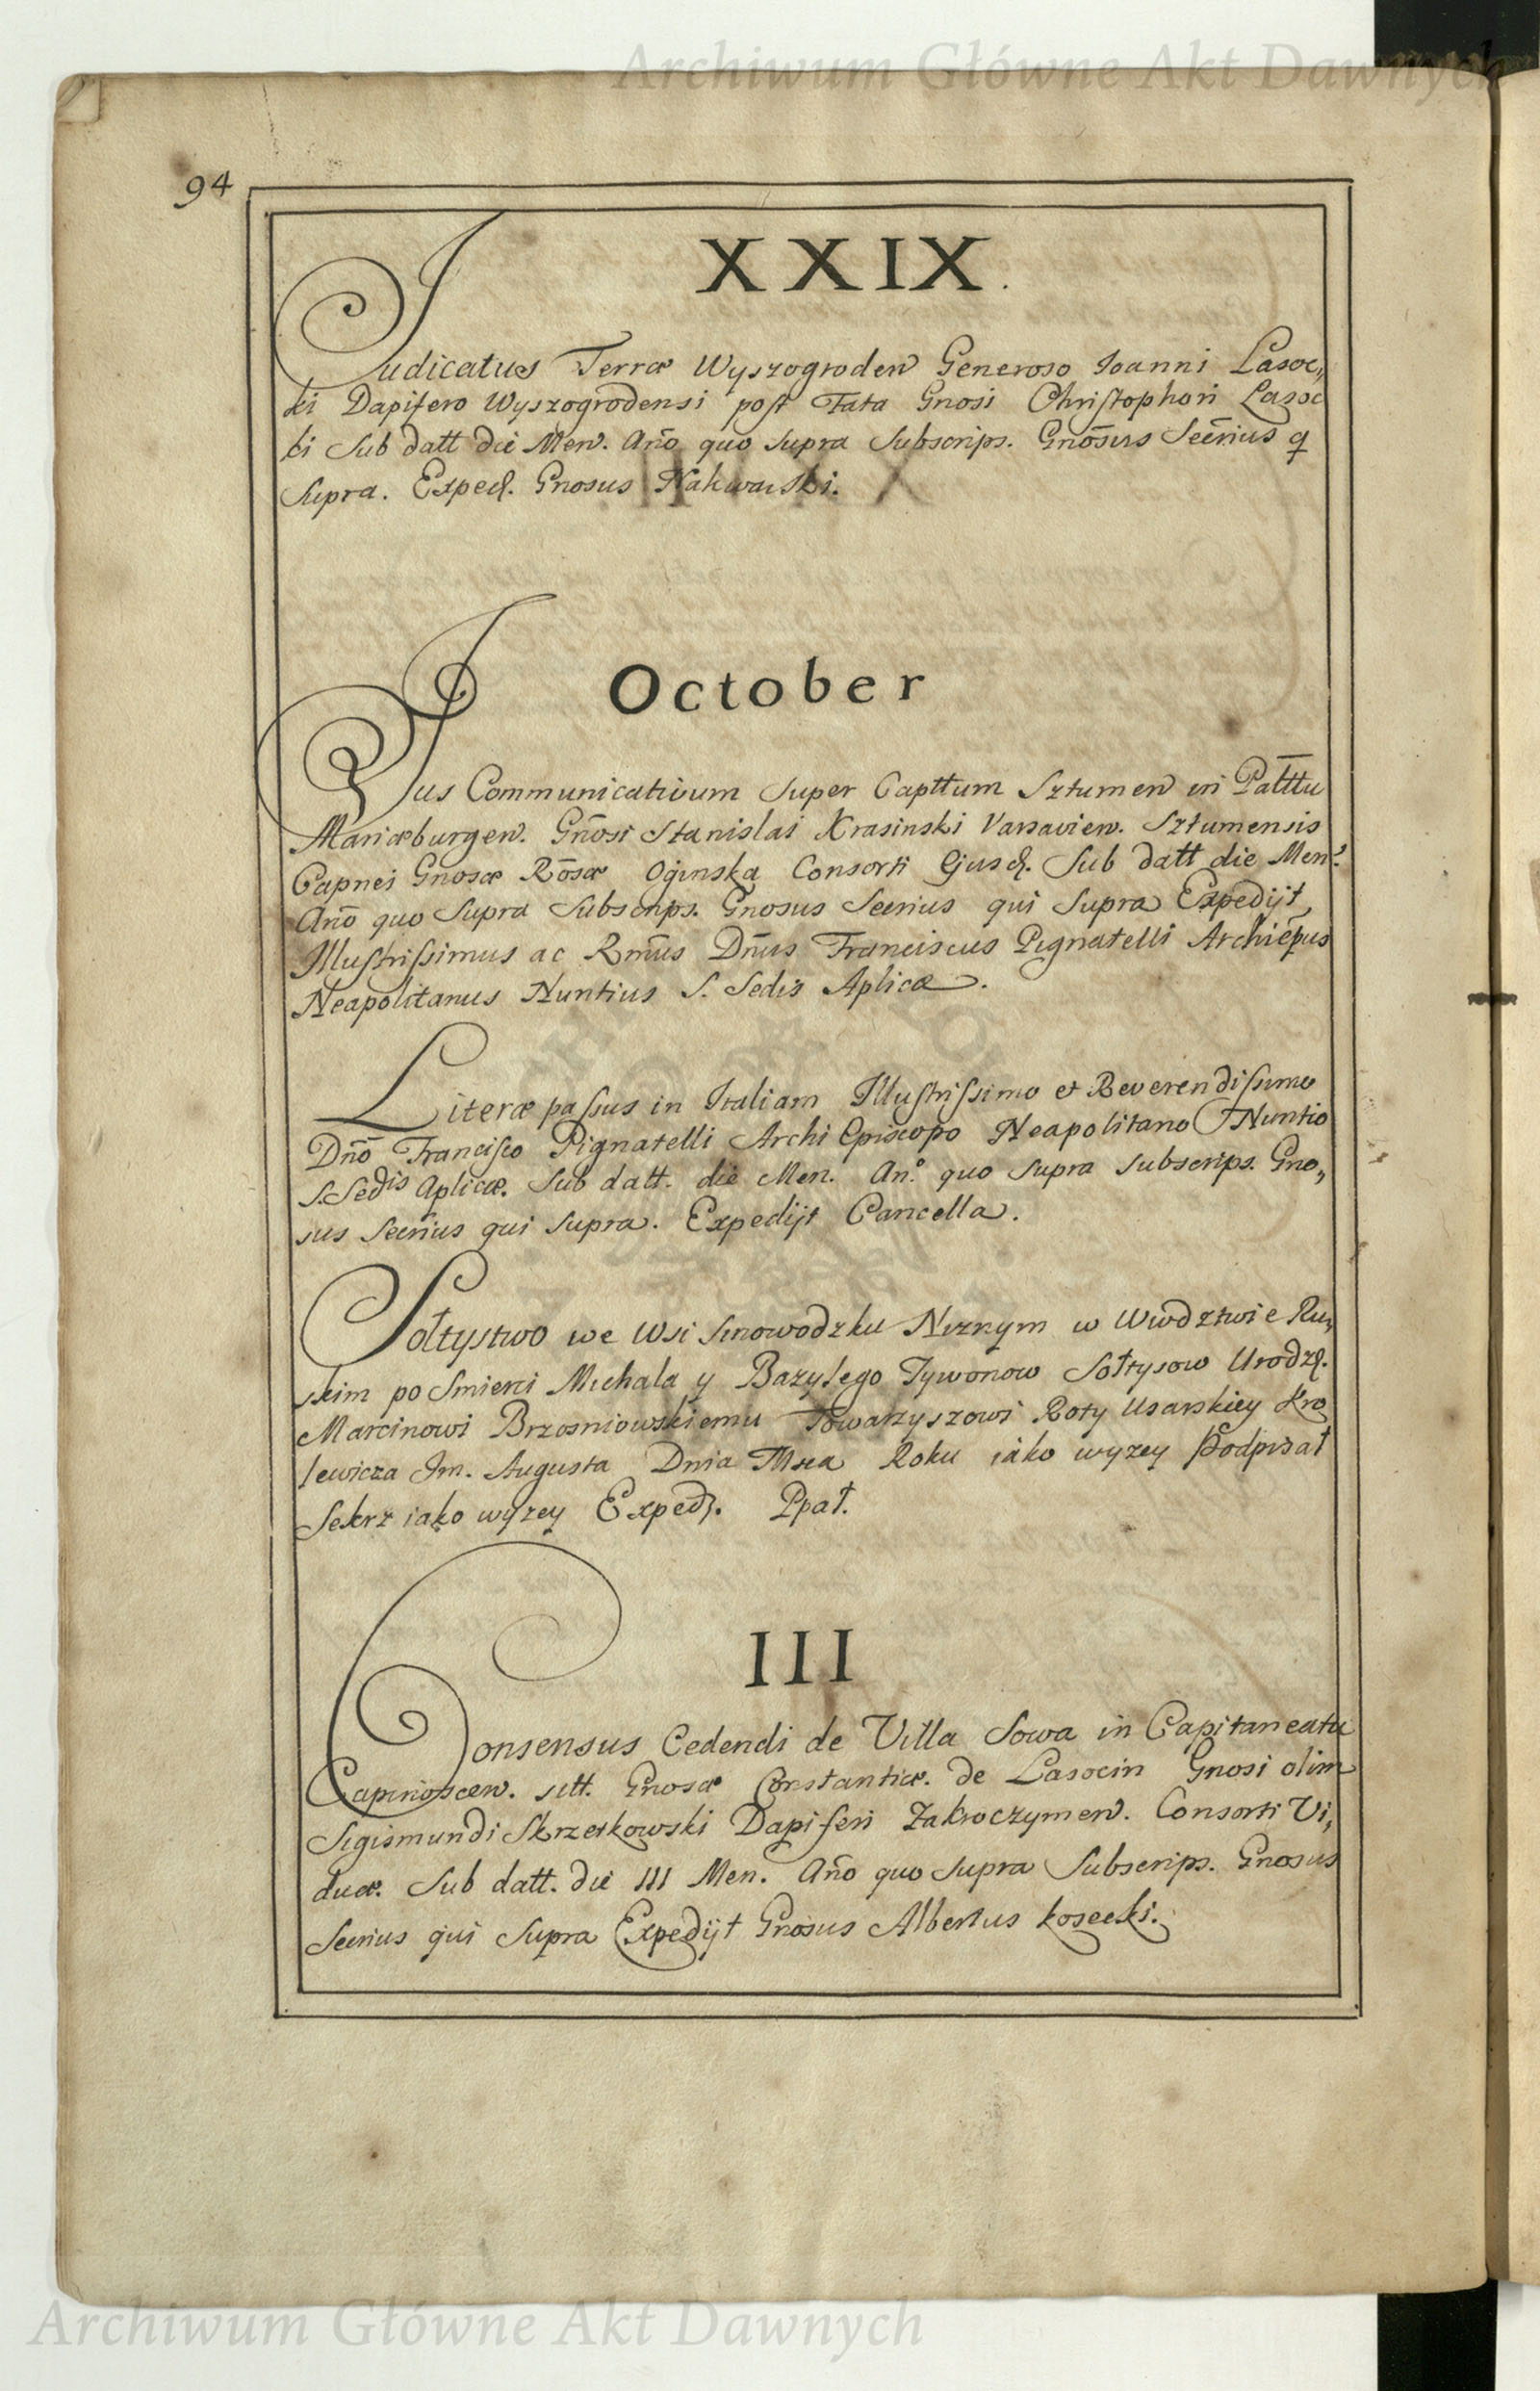 Archiwum Główne Akt Dawnych
94
XXIX.
Judicatus Terræ Wyszogroden Generoso Joanni Lasoc„
ki Dapifero Wyszogrodensi post Fata Gnosi Christophori Lasoc
ki Sub datt die Men. Año quo Supra Subscrips. Gnõsus Secrius q
Supra. Exped. Gnosus Nakwaski.
October
Jus Communicativum Super Capttum Sztumen in Palttu
Mariæburgen. Gñosi Stanislai Krasinski Varsavien. Sztumensis
Capnei Gnosæ Rõsæ Oginska Consorti Ejusd. Sub datt die Men.
Año quo Supra Subscrips. Gnosus Secrius qui Supra Expedijt
Illustrissimus ac Rmus Dñus Franciscus Pignatelli Archiepus
Neapolitanus Nuntius S. Sedis Aplicæ.
Literæ passus in Italiam Illustrissimo et Reverendissimo
Dño Francisco Pignatelli Archi Episcopo Neapolitano Nuntio
S. Sedis Aplicæ. Sub datt. die Men. An.o quo Supra Subscrips. Gno„
sus Secrius qui Supra. Expedijt Cancella.
Sołtystwo we Wsi Sinowodzku Niznym w Wwdztwie Ru„
skim po Smierci Michala y Bazylego Tywonow Sołtysow Urodz.
Marcinowi Brzosniowskiemu Towarzyszowi Roty Usarskiey Kro
lewicza Im. Augusta Dnia Msca Roku iako wyzey Podpisał
Sekrz iako wyzey Exped. Ppał.
III
Consensus Cedendi de Villa Sowa in Capitaneatu
Capinoscen. sitt. Gnosæ Constantiæ. de Lasocin Gnosi olim
Sigismundi Skrzetkowski Dapiferi Zakroczymen. Consorti Vi„
duæ. Sub datt. die III Men. Año quo Supra Subscrips. Gnosus
Secrius qui Supra Expedijt Gnosus Albertus Kosecki.
Archiwum Główne Akt Dawnych